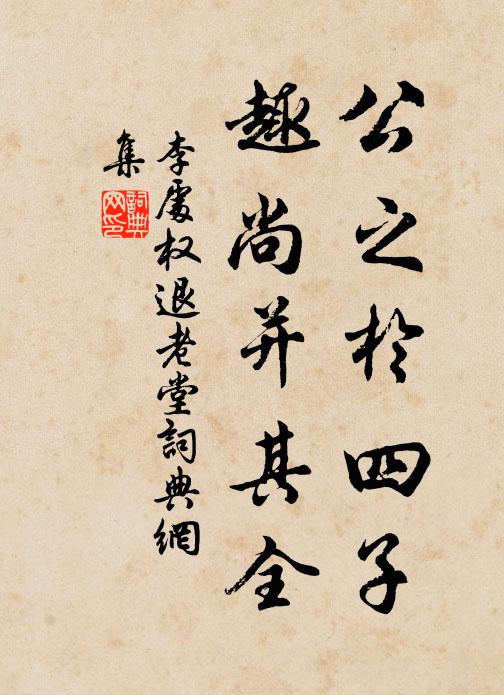 公之於四子
趣尚并其全
李處权退老堂詞典網
集
詞典网印